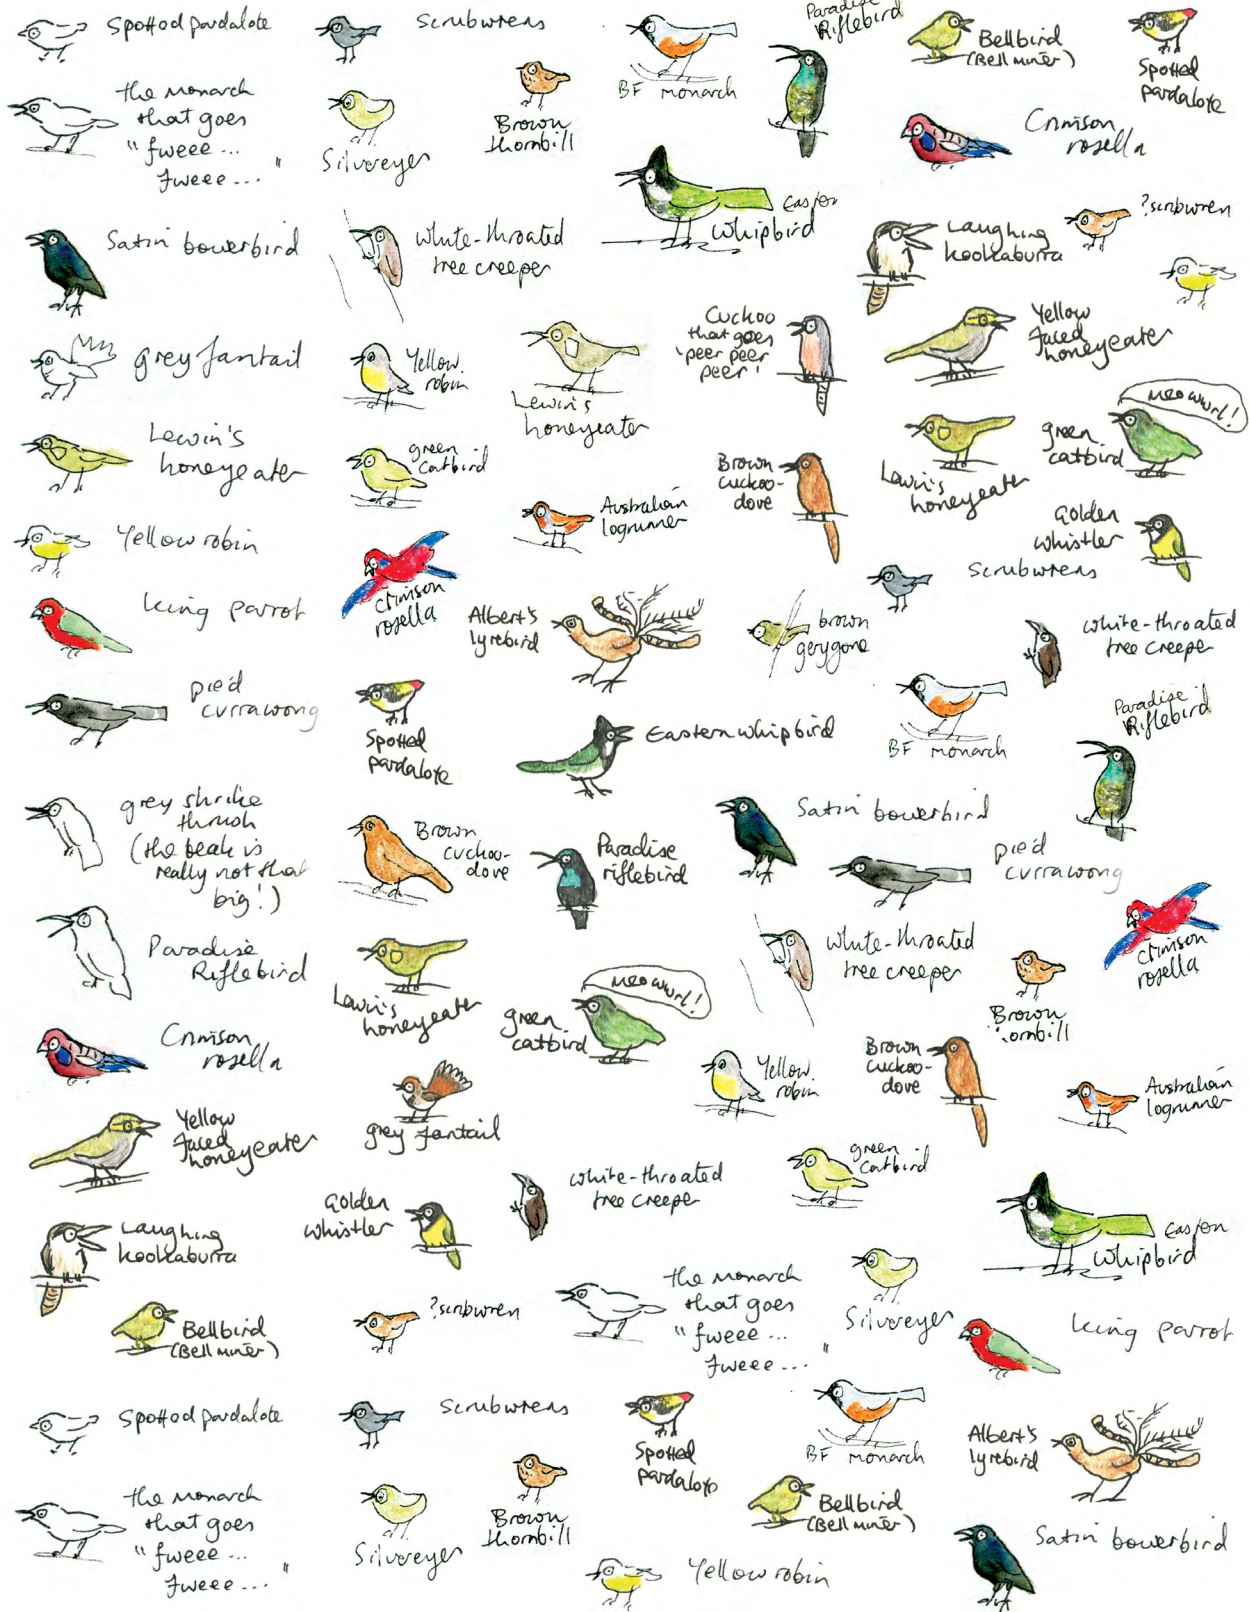 Spotted pardalote
Scrubwrens
BF monarch
Paradise
Riflebird
Bellbird
(Bell Miner)
Spotted
pardalote
the Monarch
that goes
"fweee...
fweee..."
Silvereyes
Brown
thornbill
Crimson
rosella
Eastern
Whipbird
Satin bowerbird
white-throated
tree creeper
Laughing
kookaburra
?scrubwren
grey fantail
Yellow
robin
Lewin's
honeyeater
Cuckoo
that goes
'peer peer
peer'
Yellow
faced
honeyeater
Lewin's
honeyeater
green
catbird
Brown
cuckoo-
dove
Lewin's
honeyeater
green
catbird
meowwrl!
Yellow robin
Australian
logrunner
Golden
whistler
crimson
rosella
Scrubwrens
King parrot
Albert's
lyrebird
brown
gerygone
white-throated
tree creeper
pied
currawong
Spotted
pardalote
Eastern whipbird
BF monarch
Paradise
Riflebird
grey shrike
thrush
(the beak is
really not that
big!)
Brown
cuckoo-
dove
Paradise
riflebird
Satin bowerbird
pied
currawong
Paradise
Riflebird
Lewin's
honeyeater
green
catbird
meowwrl!
white-throated
tree creeper
Brown
ornbill
crimson
rosella
Crimson
rosella
grey fantail
Yellow
robin
Brown
cuckoo-
dove
Australian
logrunner
Yellow
faced
honeyeater
white-throated
tree creeper
green
catbird
Laughing
kookaburra
Golden
whistler
Eastern
Whipbird
the Monarch
that goes
"fweee...
fweee..."
Silvereyes
Bellbird
(Bell Miner)
?scrubwren
King parrot
Spotted pardalote
Scrubwrens
Spotted
pardalote
BF monarch
Albert's
lyrebird
the Monarch
that goes
"fweee...
fweee..."
Silvereyes
Brown
thornbill
Bellbird
(Bell Miner)
Yellow robin
Satin bowerbird